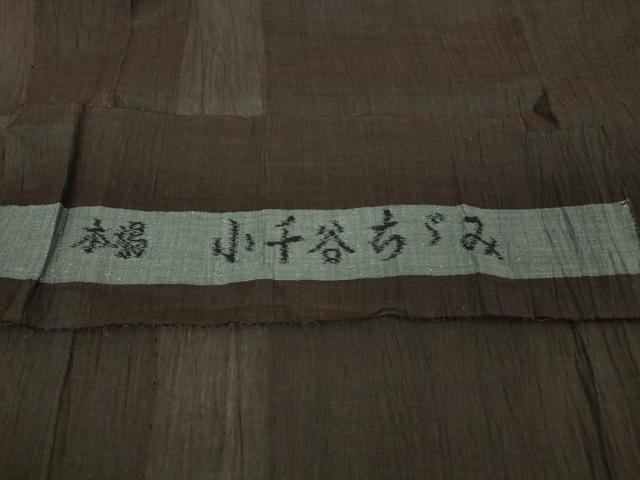 本場 小千谷ちゞみ